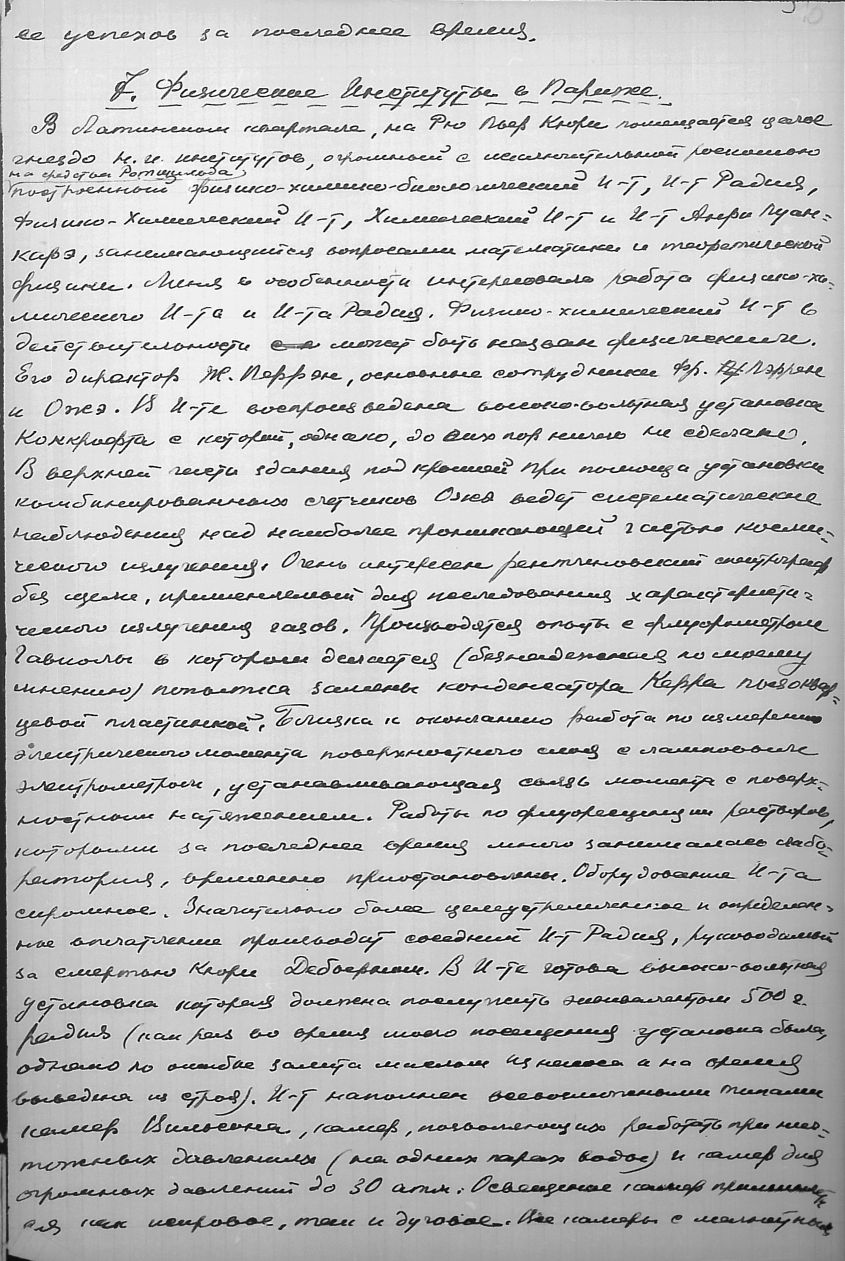 ее успехов за последнее время.
7. Физические Институты в Париже.
В Латинском квартале, на Рю Пьер Кюри помещается целое
гнездо н. и. институтов, огромный с исключительной роскошью
на средства Ротшильда
построенный физико-химико-биологический И-т, И-т Радия,
Физико-Химический И-т, Химический И-т и И-т Анри Пуан-
карэ, занимающийся вопросами математики и теоретической
физики. Меня в особенности интересовала работа физико-хи-
мического И-та и И-та Радия. Физико-химический И-т в
действительности может быть назван физическим.
Его директор Ж. Перрэн, основные сотрудники Фр. Пэррен
и Ожэ. В И-те воспроизведена высоко-вольтная установка
Конкрофта с которой, однако, до сих пор ничего не сделано.
В верхней части здания под крышей при помощи установки
комбинированных счетчиков Ожэ ведет систематические
наблюдения над наиболее проникающей частью косми-
ческого излучения. Очень интересен рентгеновский спектрограф
без щели, применяемый для исследования характеристи-
ческого излучения газов. Производятся опыты с флуорометром
Гавиолы в котором делается (безнадежная по моему
мнению) попытка замены конденсатора Керра пьезоквар-
цевой пластинкой. Близка к окончанию работа по измерению
электрического момента поверхностного слоя с ламповым
электрометром, устанавливающая связь момента с поверх-
ностным натяжением. Работы по флуоресценции растворов,
которыми за последнее время много занималась лабо-
ратория, временно приостановлены. Оборудование И-та
скромное. Значительно более целеустремленное и определен-
ное впечатление производит соседний И-т Радия, руководимый
за смертью Кюри Дебьерном. В И-те готова высоко-вольтная
установка которая должна послужить эквивалентом 500 г.
радия (как раз во время моего посещения установка была,
однако по ошибке залита маслом из насоса и на время
выведена из строя). И-т наполнен всевозможными типами
камер Вильсона, камер, позволяющих работать при нич-
тожных давлениях (на одних парах воды) и камер для
огромных давлений до 30 атм. Освещение камер применяет-
ся как искровое, так и дуговое. Все камеры с магнитным